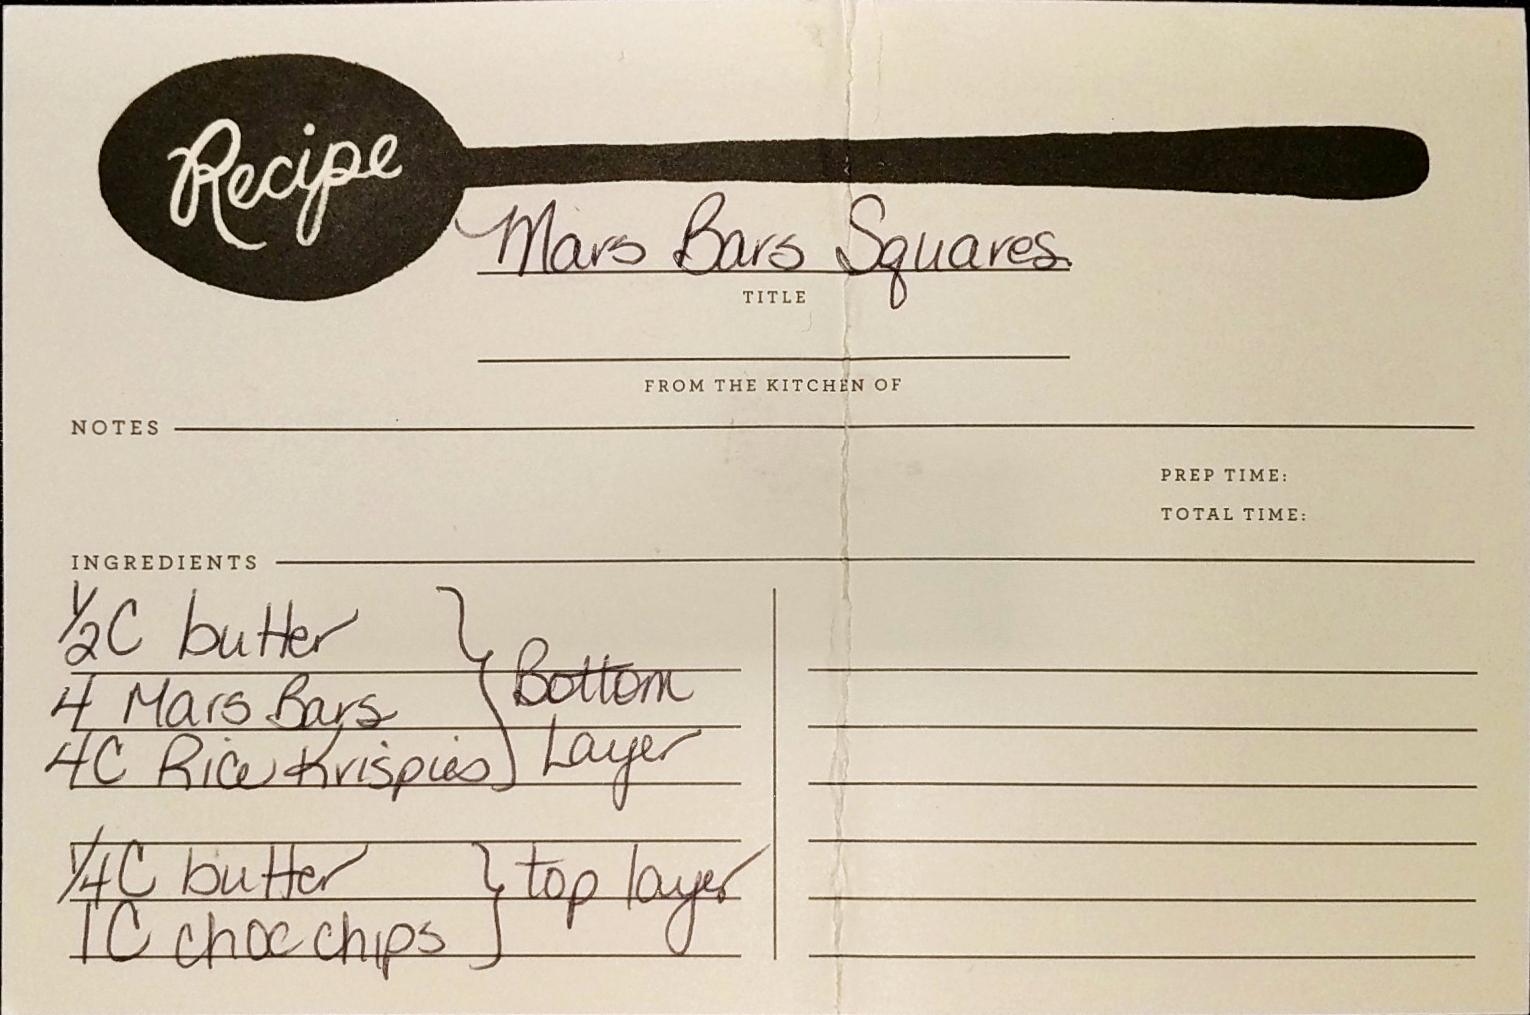 Recipe
Mars Bars Squares
TITLE
FROM THE KITCHEN OF
NOTES
PREP TIME:
TOTAL TIME:
INGREDIENTS
1/2C butter
4 Mars Bars
4C Rice Krispies
Bottom
Layer
1/4C butter
1C choc chips
top layer